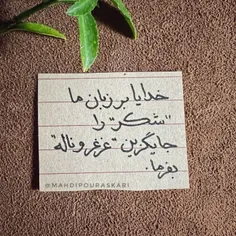 خدایا بر زبان ما
"شکر" را
جایگزین "غرغر و ناله"
بفرما.
@MAHDIPOURASKARI